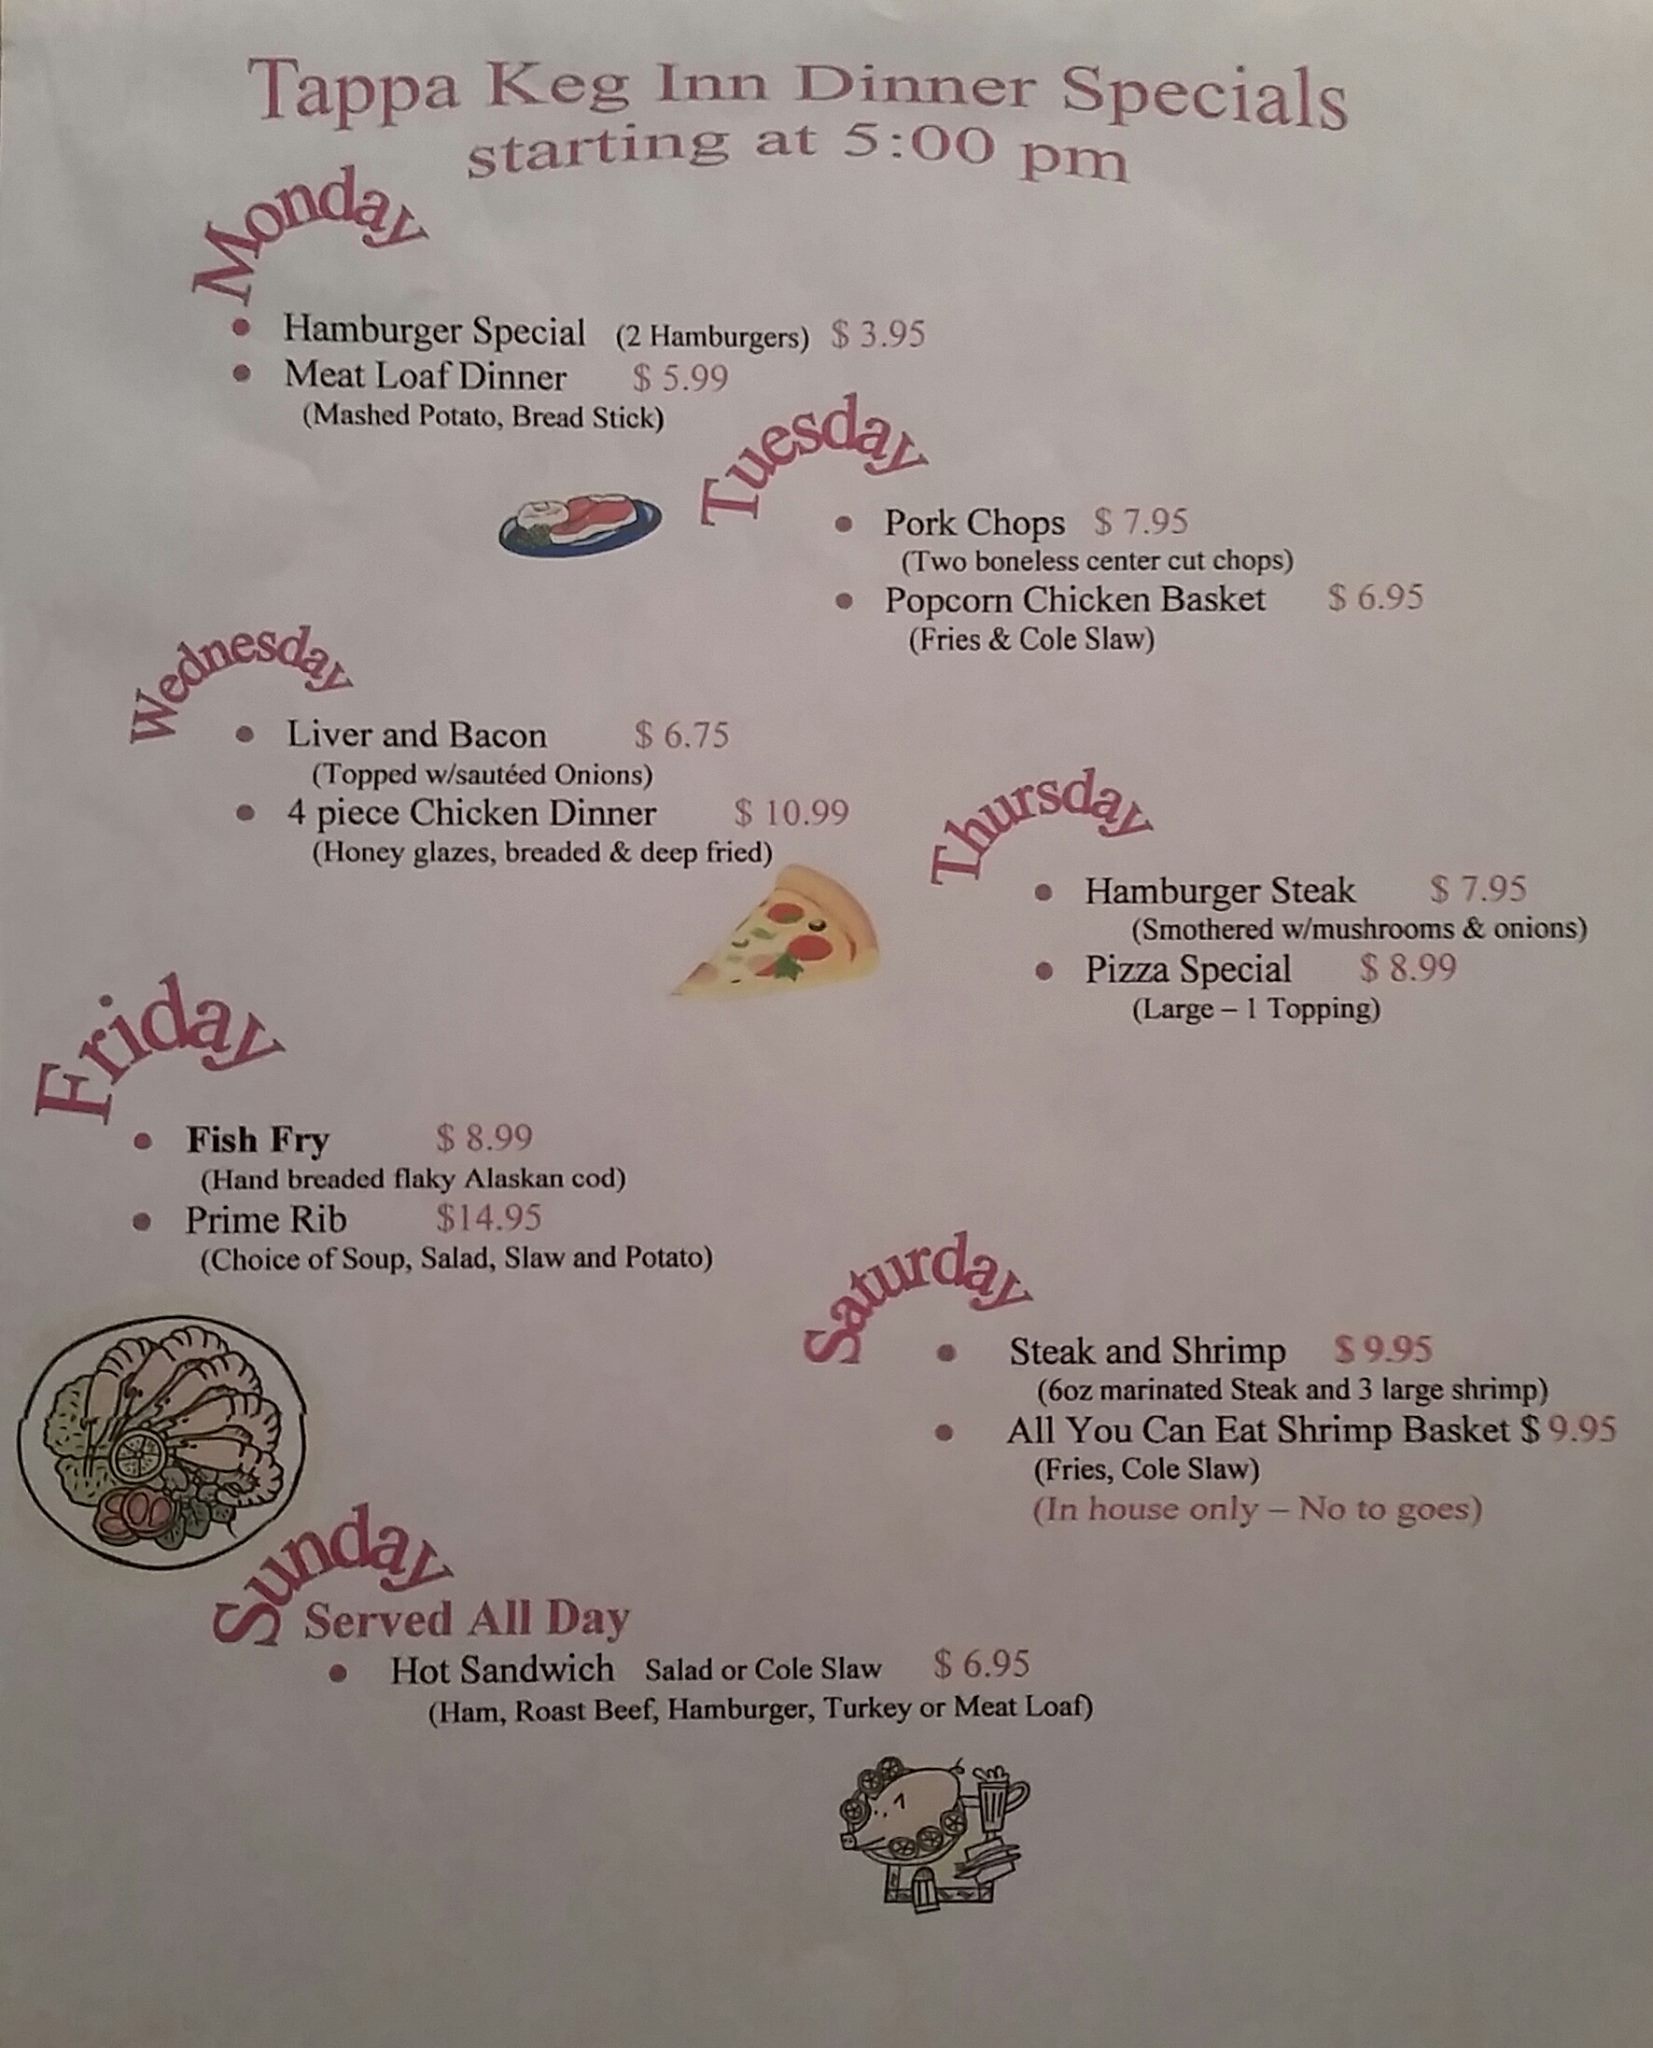 Tappa Keg Inn Dinner Specials
starting at 5:00 pm
Monday
• Hamburger Special (2 Hamburgers) $ 3.95
• Meat Loaf Dinner $ 5.99
(Mashed Potato, Bread Stick)
Tuesday
• Pork Chops $ 7.95
(Two boneless center cut chops)
• Popcorn Chicken Basket $ 6.95
(Fries & Cole Slaw)
Wednesday
• Liver and Bacon $ 6.75
(Topped w/sautéed Onions)
• 4 piece Chicken Dinner $ 10.99
(Honey glazes, breaded & deep fried)
Thursday
• Hamburger Steak $ 7.95
(Smothered w/mushrooms & onions)
• Pizza Special $ 8.99
(Large – 1 Topping)
Friday
• Fish Fry $ 8.99
(Hand breaded flaky Alaskan cod)
• Prime Rib $14.95
(Choice of Soup, Salad, Slaw and Potato)
Saturday
• Steak and Shrimp $ 9.95
(6oz marinated Steak and 3 large shrimp)
• All You Can Eat Shrimp Basket $ 9.95
(Fries, Cole Slaw)
(In house only – No to goes)
Sunday
Served All Day
• Hot Sandwich Salad or Cole Slaw $ 6.95
(Ham, Roast Beef, Hamburger, Turkey or Meat Loaf)